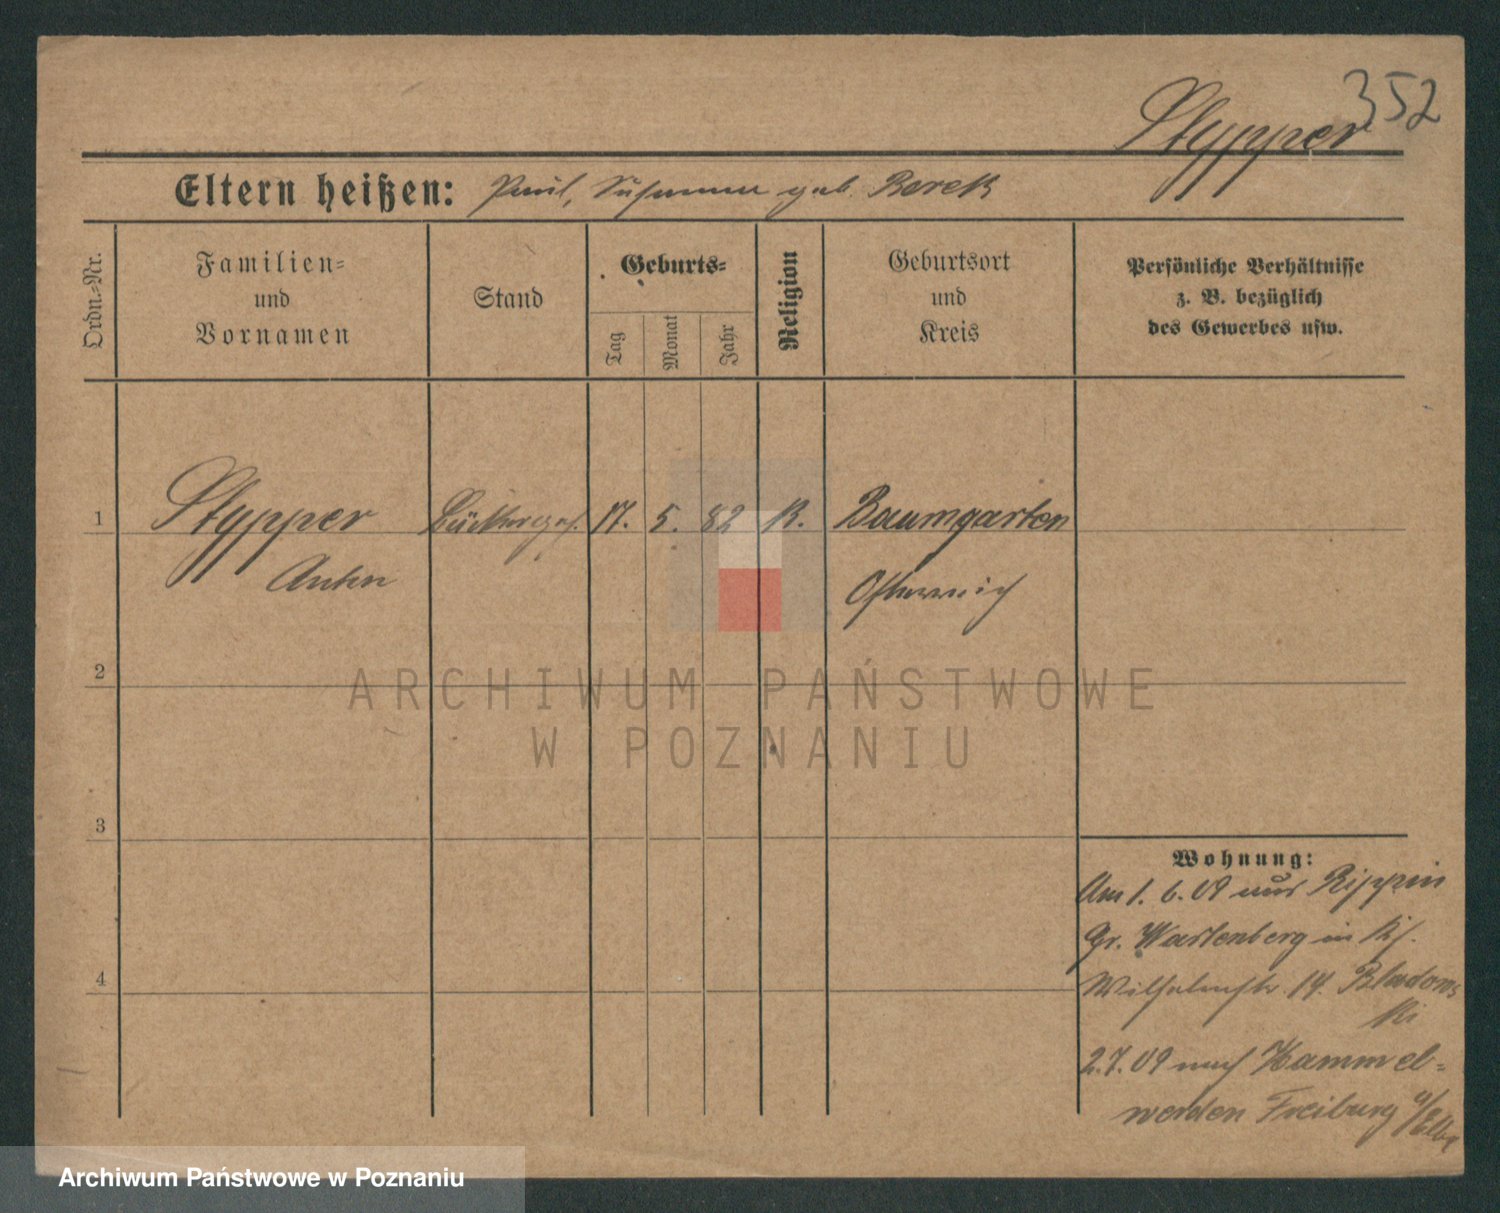 352
Stypper
Eltern heißen: Paul, Susanna geb. Berek
Ordn.-Nr.
Familien-
und
Vornamen
Stand
Geburts-
Tag
Monat
Jahr
Religion
Geburtsort
und
Kreis
Persönliche Verhältnisse
z. B. bezüglich
des Gewerbes usw.
1 Stypper Bäckerges. 17. 5. 82 K. Baumgarten
Anton Österreich
2
ARCHIWUM PAŃSTWOWE
W POZNANIU
3
Wohnung:
Am 1. 6. 09 aus Rippin
Gr. Wartenberg in
4
Wilhelmstr. 14. Bladows
ki
2.7.09 nach Hammel-
werden Freiburg a/Elbe
Archiwum Państwowe w Poznaniu